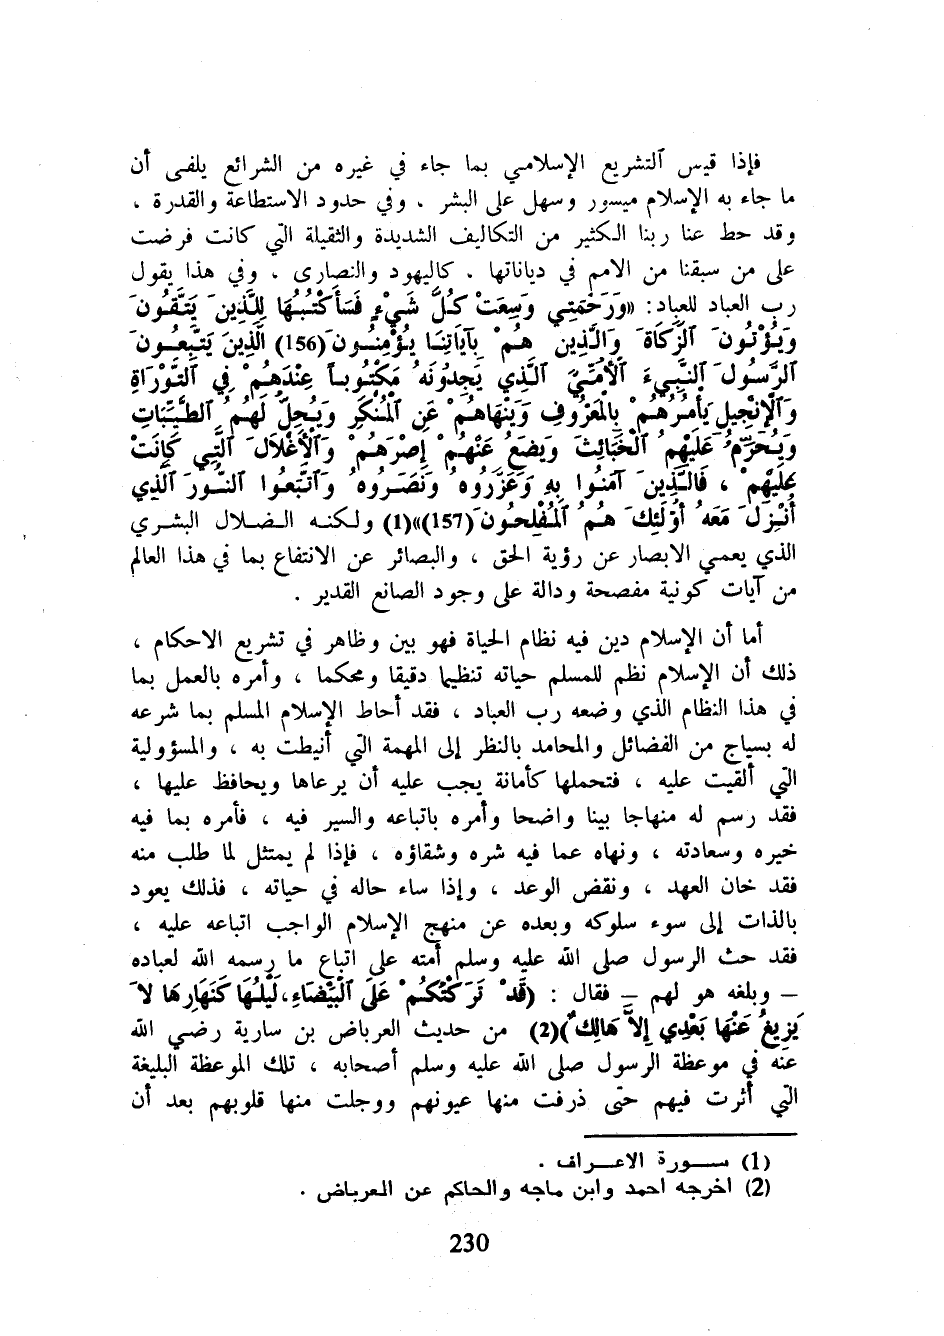 فإذا قيس ٱلتشريع الإسلامي بما جاء في غيره من الشرائع يلفى أن
ما جاء به الإسلام ميسور وسهل على البشر . وفي حدود الاستطاعة والقدرة .
وقد حط عنا ربنا الكثير من التكاليف الشديدة والثقيلة التي كانت فرضت
على من سبقنا من الامم في دياناتها . كاليهود والنصارى . وفي هذا يقول
رب العباد للعباد: «وَرَحْمَتِي وَسِعَتْ كُلَّ شَيْءٍ فَسَأَكْتُبُهَا لِلَّذِينَ يَتَّقُونَ
وَيُؤْتُونَ ٱلزَّكَاةَ وَالَّذِينَ هُمْ بِآيَاتِنَا يُؤْمِنُونَ(156) ٱلَّذِينَ يَتَّبِعُونَ
ٱلرَّسُولَ ٱلنَّبِيءَ ٱلْأُمِّيَّ ٱلَّذِي يَجِدُونَهُ مَكْتُوباً عِنْدَهُمْ فِي ٱلتَّوْرَاةِ
وَٱلْإِنْجِيلِ يَأْمُرُهُمْ بِالْمَعْرُوفِ وَيَنْهَاهُمْ عَنِ ٱلْمُنْكَرِ وَيُحِلُّ لَهُمُ ٱلطَّيِّبَاتِ
وَيُحَرِّمُ عَلَيْهِمُ ٱلْخَبَائِثَ وَيَضَعُ عَنْهُمْ إِصْرَهُمْ وَٱلْأَغْلَالَ ٱلَّتِي كَانَتْ
عَلَيْهِمْ ، فَالَّذِينَ آمَنُوا بِهِ وَعَزَّرُوهُ وَنَصَرُوهُ وَٱتَّبَعُوا ٱلنُّورَ ٱلَّذِي
أُنْزِلَ مَعَهُ أُوْلَئِكَ هُمُ ٱلْمُفْلِحُونَ(157)»(1) ولكنه الضلال البشري
الذي يعمي الابصار عن رؤية الحق ، والبصائر عن الانتفاع بما في هذا العالم
من آيات كونية مفصحة ودالة على وجود الصانع القدير .
أما أن الإسلام دين فيه نظام الحياة فهو بين وظاهر في تشريع الاحكام ،
ذلك أن الإسلام نظم للمسلم حياته تنظيما دقيقا ومحكما ، وأمره بالعمل بما
في هذا النظام الذي وضعه رب العباد ، فقد أحاط الإسلام المسلم بما شرعه
له بسياج من الفضائل والمحامد بالنظر إلى المهمة التي أنيطت به ، والمسؤولية
التي ألقيت عليه ، فتحملها كأمانة يجب عليه أن يرعاها ويحافظ عليها ،
فقد رسم له منهاجا بينا واضحا وأمره باتباعه والسير فيه ، فأمره بما فيه
خيره وسعادته ، ونهاه عما فيه شره وشقاؤه ، فإذا لم يمتثل لما طلب منه
فقد خان العهد ، ونقض الوعد ، وإذا ساء حاله في حياته ، فذلك يعود
بالذات إلى سوء سلوكه وبعده عن منهج الإسلام الواجب اتباعه عليه ،
فقد حث الرسول صلى الله عليه وسلم أمته على اتباع ما رسمه الله لعباده
– وبلغه هو لهم – فقال : (قَدْ تَرَكْتُكُمْ عَلَى ٱلْبَيْضَاءِ، لَيْلُهَا كَنَهَارِهَا لاَ
يَزِيغُ عَنْهَا بَعْدِي إِلاَّ هَالِكٌ)(2) من حديث العرباض بن سارية رضي الله
عنه في موعظة الرسول صلى الله عليه وسلم أصحابه ، تلك الموعظة البليغة
التي أثرت فيهم حتى ذرفت منها عيونهم ووجلت منها قلوبهم بعد أن
(1) ســورة الاعــراف .
(2) اخرجه احمد وابن ماجه والحاكم عن العرباض .
230